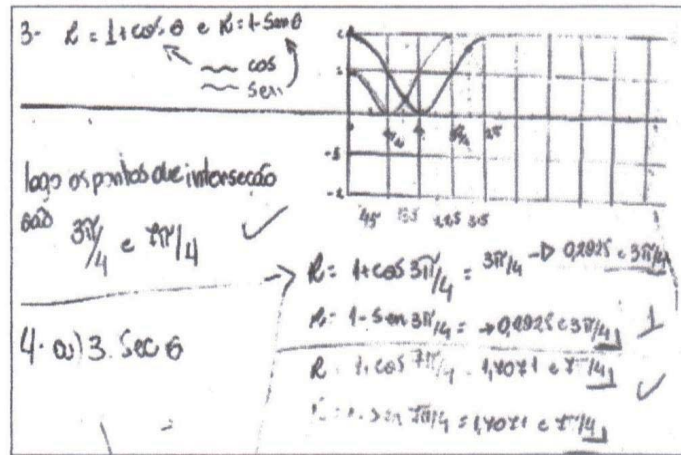 3- R = 1+cos θ e R = 1-Senθ
cos
Sen
logo os pontos de interseção
são 3π/4 e 7π/4
R = 1+cos 3π/4 = 3π/4 → 0,2925 e 3π/4
R = 1-Sen 3π/4 = → 0,2925 e 3π/4
R = 1+cos 7π/4 = 1,7071 e 7π/4
sen 7π/4 = 1,7071 e 7π/4
4- a) 3. Sec θ